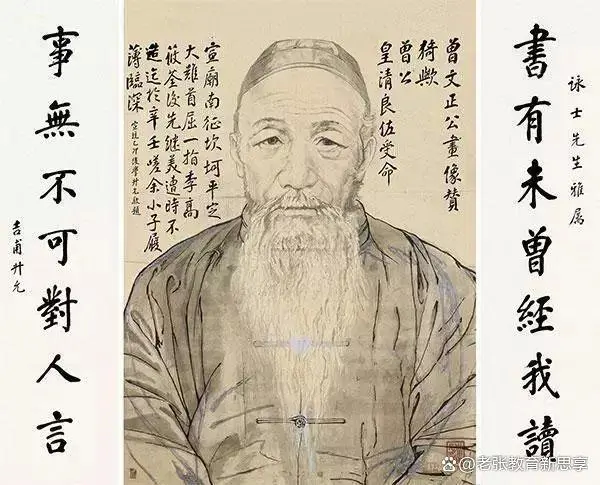 詠士先生雅属
書有未曾經我讀
曾文正公畫像贊
猗歟
曾公
皇清良佐受命
宣廟南征坎坷平定
大難首屈一指李高
筱荃後先繼美遭時不
造迄於辛嗟余小子履
薄臨深
事無不可對人言
吉甫升允
老张教育新思享